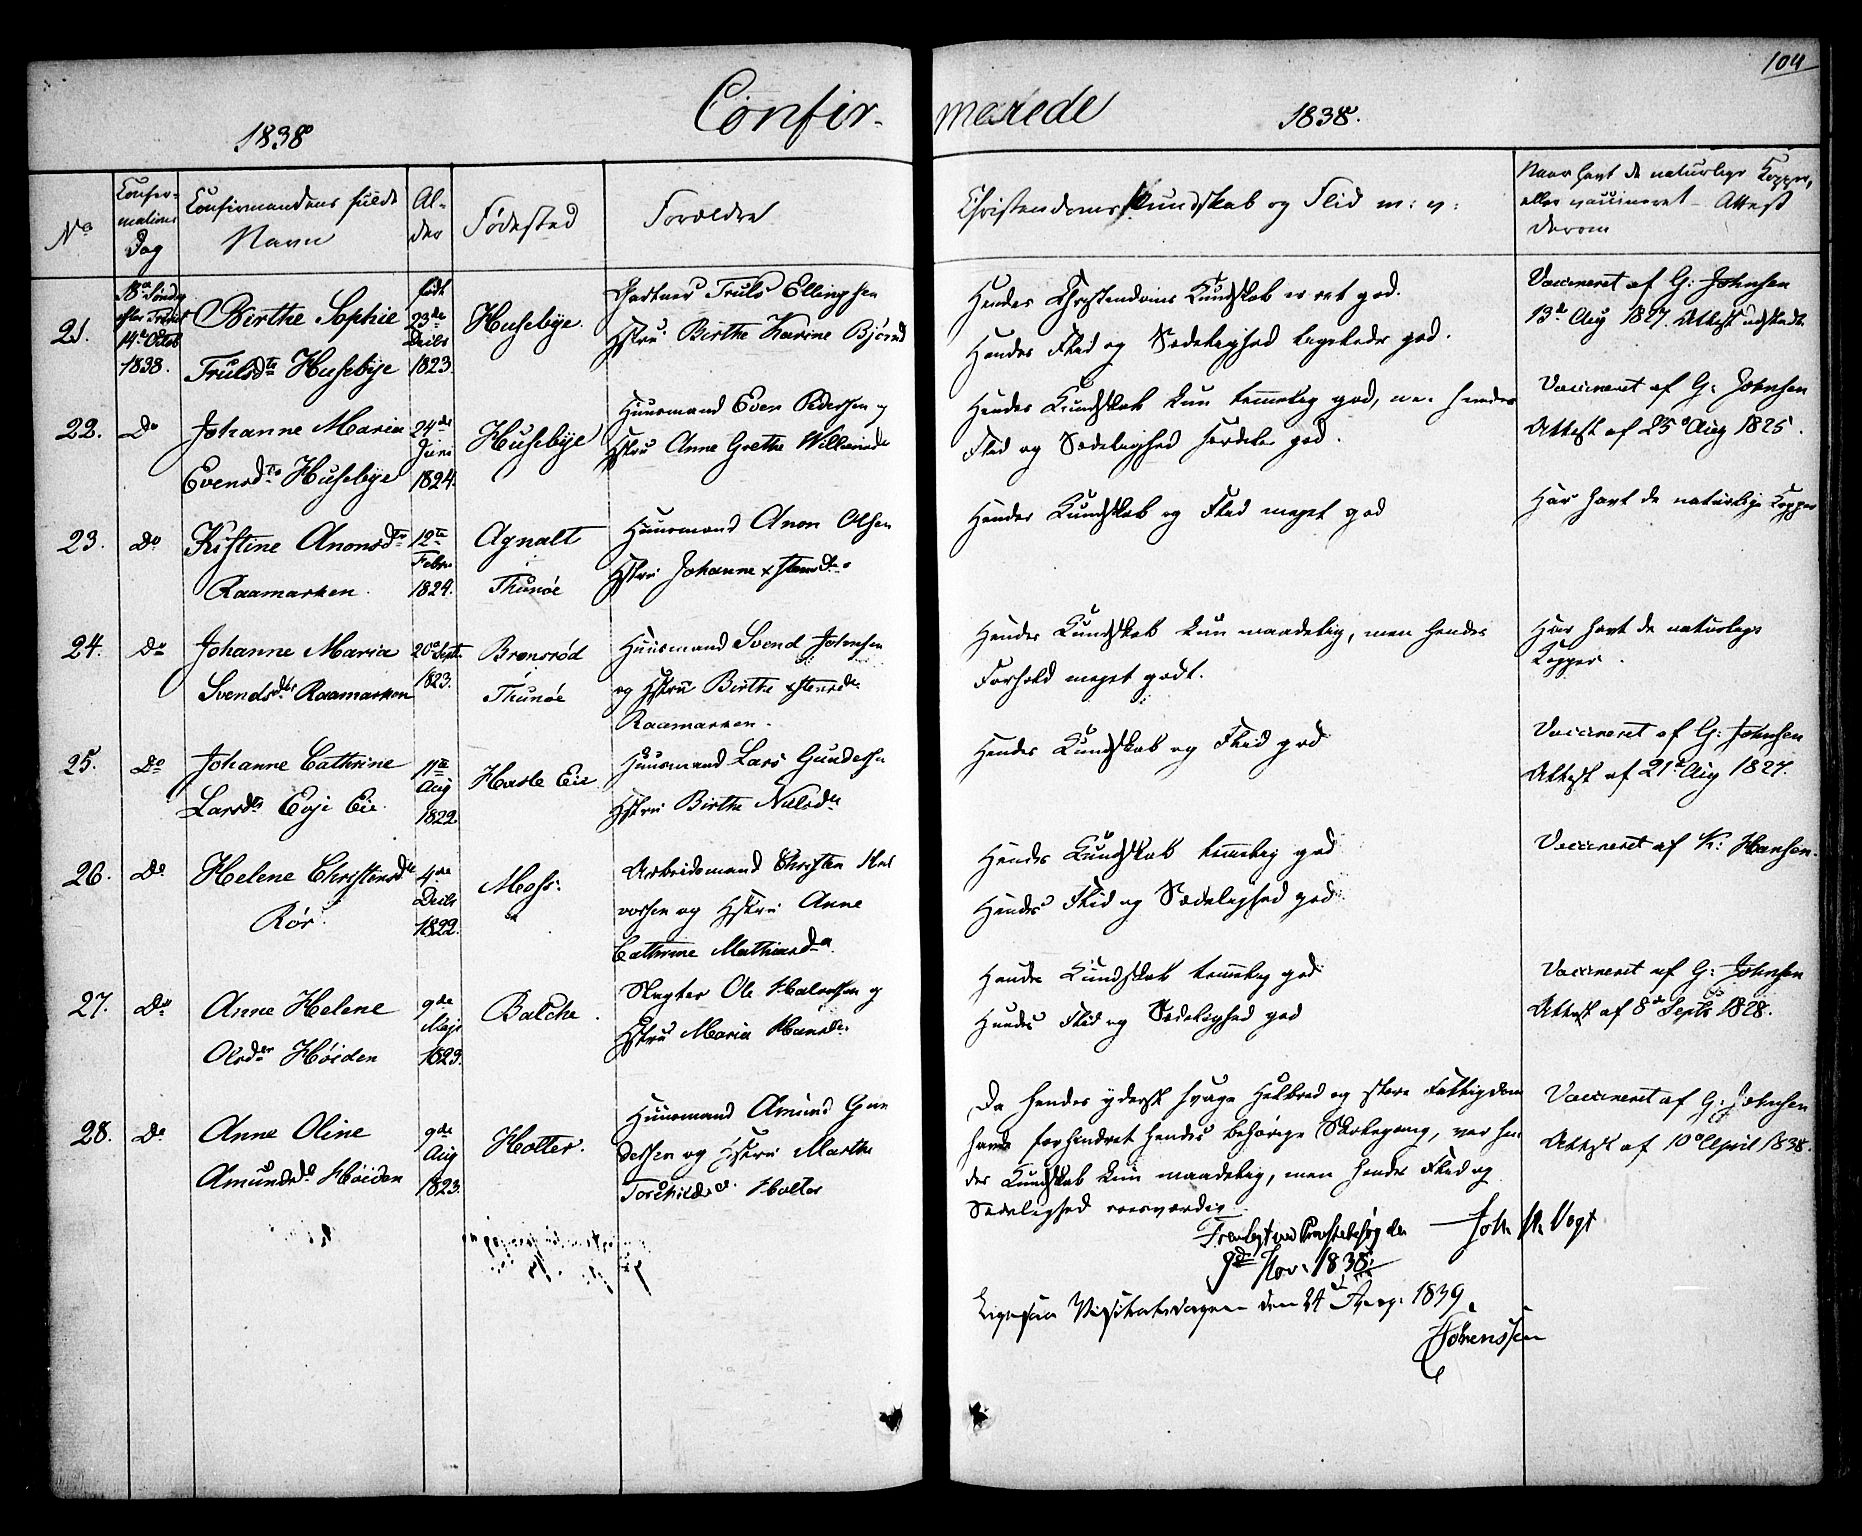 104
Confirmerede
1838
1838.
No
Confirmations Dag
Confirmandens fulde Navn
Alder
Fødested
Forældre
Christendomskundskab og Flid m: v:
Naar havt de naturlige Kopper, eller vaccineret – Attest derom
21.
18de Søndag efter Trinit 14de Octob 1838.
Birthe Sophie
Trulsdtr Husebÿe
født 23de Decbr 1823.
Husebÿe.
Gartner Truls Ellingsen
Hstru Birthe Karine Bjørnd
Hendes Christendoms Kundskab er ret god.
Hendes Flid og Sædelighed ligeledes god.
Vaccineret af G: Johnsen
13de Aug 1827. Attest udstedt
22.
Do
Johanne Maria
Evensdtr Husebÿe
24de Juni 1824.
Husebÿe
Huusmand Even Pedersen og
Hstru Anne Grethe Willumsdr
Hendes Kundskab kun temmelig god, men hendes
Flid og Sædelighed særdeles god.
Vaccineret af G: Johnsen
Attest af 25de Aug 1825.
23.
Do
Kistine Anonsdr
Raamarken.
12te Febr 1824.
Agnalt
Thunöe
Huusmand Anon Olsen
Hstru Johanne
Hendes Kundskab og Flid meget god
Har havt de naturlige Kopper
24.
Do
Johanne Maria
Svendsdtr Raamarken
20de Septr 1823.
Bronsröd
Thunöe
Huusmand Svend Johnsen
og Hstru Birthe
Raamarken.
Hendes Kundskab kun maadelig, men hendes
Forhold meget godt.
Har havt de naturlige
Kopper.
25.
Do
Johanne Cathrine
Larsdr Evje Eie.
11te Aug 1822.
Hasle Eie.
Huusmand Lars Gundersen
Hstru Birthe Nielsdr
Hendes Kundskab og Flid god
Vaccineret af G: Johnsen
Attest af 21de Aug 1827.
26.
Do
Helene Christensdr
Rör.
4de Decbr 1822.
Moss.
Arbeidsmand Christen Hal
vorsen og Hstru Anne
Cathrine Mathiasdr
Hendes Kundskab temmelig god
Hendes Flid og Sædelighed god
Vaccineret af K: Hansen.
27.
Do
Anne Helene
Olsdtr Höiden
9de Maji 1823.
Balche.
Slagter Ole Halvorsen og
Hstru Maria Hansdr
Hendes Kundskab temmelig god
Hendes Flid og Sædelighed god
Vaccineret af G: Johnsen
Attest af 8de Septbr 1828.
28.
Do
Anne Oline
Amundsdr Höiden
9de Aug 1823.
Holter.
Huusmand Amund Gun
dersen og Hstru Marthe
Torchildsdr Holter
Da hendes yderst svage Helbred og store Fattigdom
have forhindret hendes behørige Skolegang, var hen
des Kundskab kun maadelig, men hendes Flid og
Sædelighed roesværdig.
Vaccineret af G: Johnsen
Attest af 10de April 1838.
Fremlagt ved Provstebesøg den
9de Nov. 1838.
Joh. Vogt
Ligesaa Visitatsdagen den 24de Aug. 1839.
Sørenssen